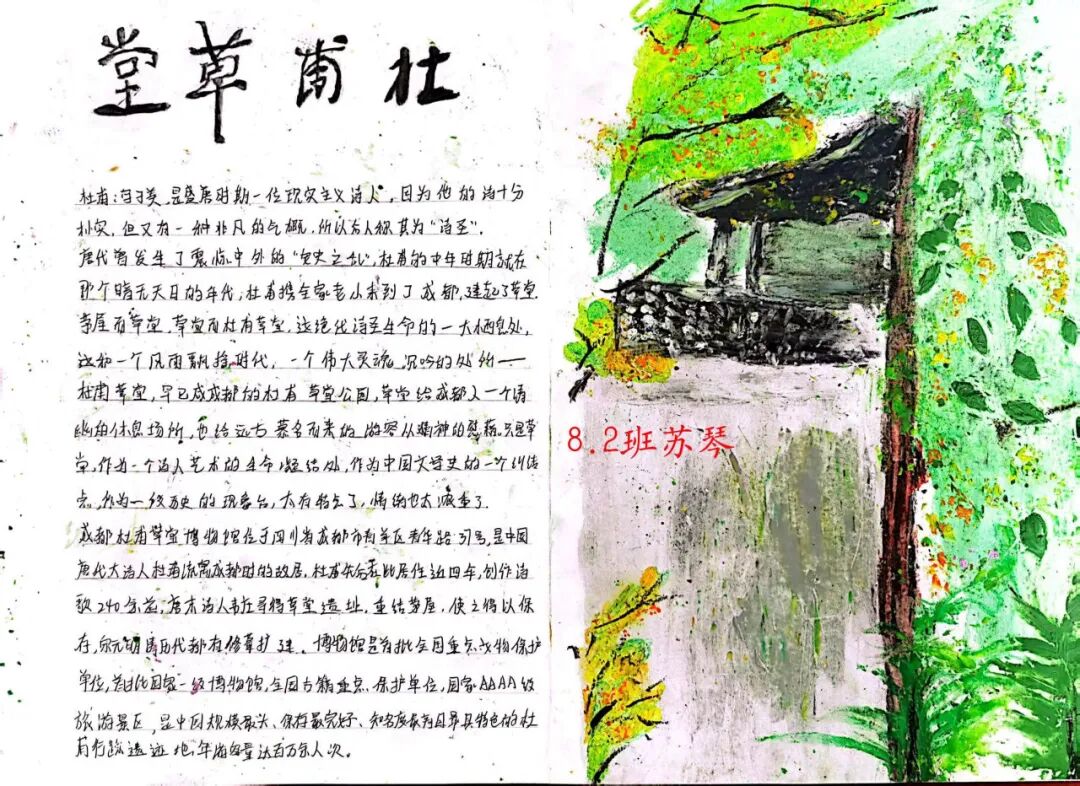 杜甫草堂
杜甫:字子美,是盛唐时期一位现实主义诗人,因为他的诗十分
朴实,但又有一种非凡的气概,所以古人称其为“诗圣”.
唐代曾发生了震惊中外的“安史之乱”,杜甫的中年时期就在
那个暗无天日的年代,杜甫携全家老从来到了成都,建起了草堂.
茅屋而草堂,草堂而杜甫草堂,这绝代诗圣生命的一大栖息处,
这和一个风雨飘摇时代,一个伟大灵魂沉吟的处所——
杜甫草堂,早已成成都的杜甫草堂公园,草堂给成都人一个清
幽的休息场所,也给远方慕名而来的游客以精神的慰藉.只是草
堂,作为一个诗人艺术的生命凝结处,作为中国文学史的一个纠结
点,作为一级历史的观景台,太有特点了,情绪也太凝重了.
成都杜甫草堂博物馆位于四川省成都市青羊区青华路37号,是中国
唐代大诗人杜甫流寓成都时的故居.杜甫先后在此居住近四年,创作诗
歌240余首,唐末诗人韦庄寻得草堂遗址,重结茅屋,使之得以保
存,宋元明清历代都有修葺扩建.博物馆是首批全国重点文物保护
单位,首批国家一级博物馆,全国古籍重点保护单位,国家AAAA级
旅游景区,是中国规模最大、保存最完好、知名度最高且最具特色的杜
甫行踪遗迹地,年游客量达百万余人次.
8.2班苏琴